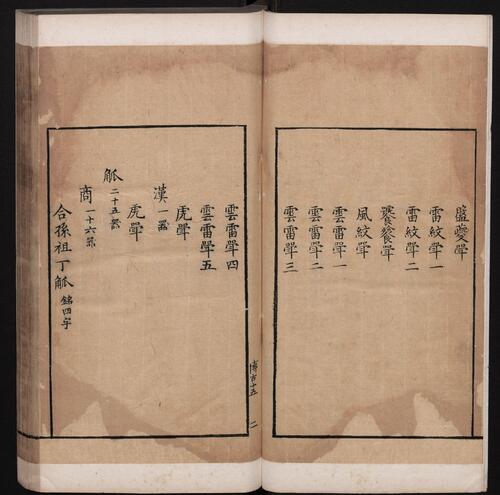 盤夔斝
雷紋斝一
雷紋斝二
饕餮斝
風紋斝
雲雷斝一
雲雷斝二
雲雷斝三
博古十五 二
雲雷斝四
雲雷斝五
虎斝
漢一器
虎斝
觚二十五器
商一十六器
合孫祖丁觚銘四字